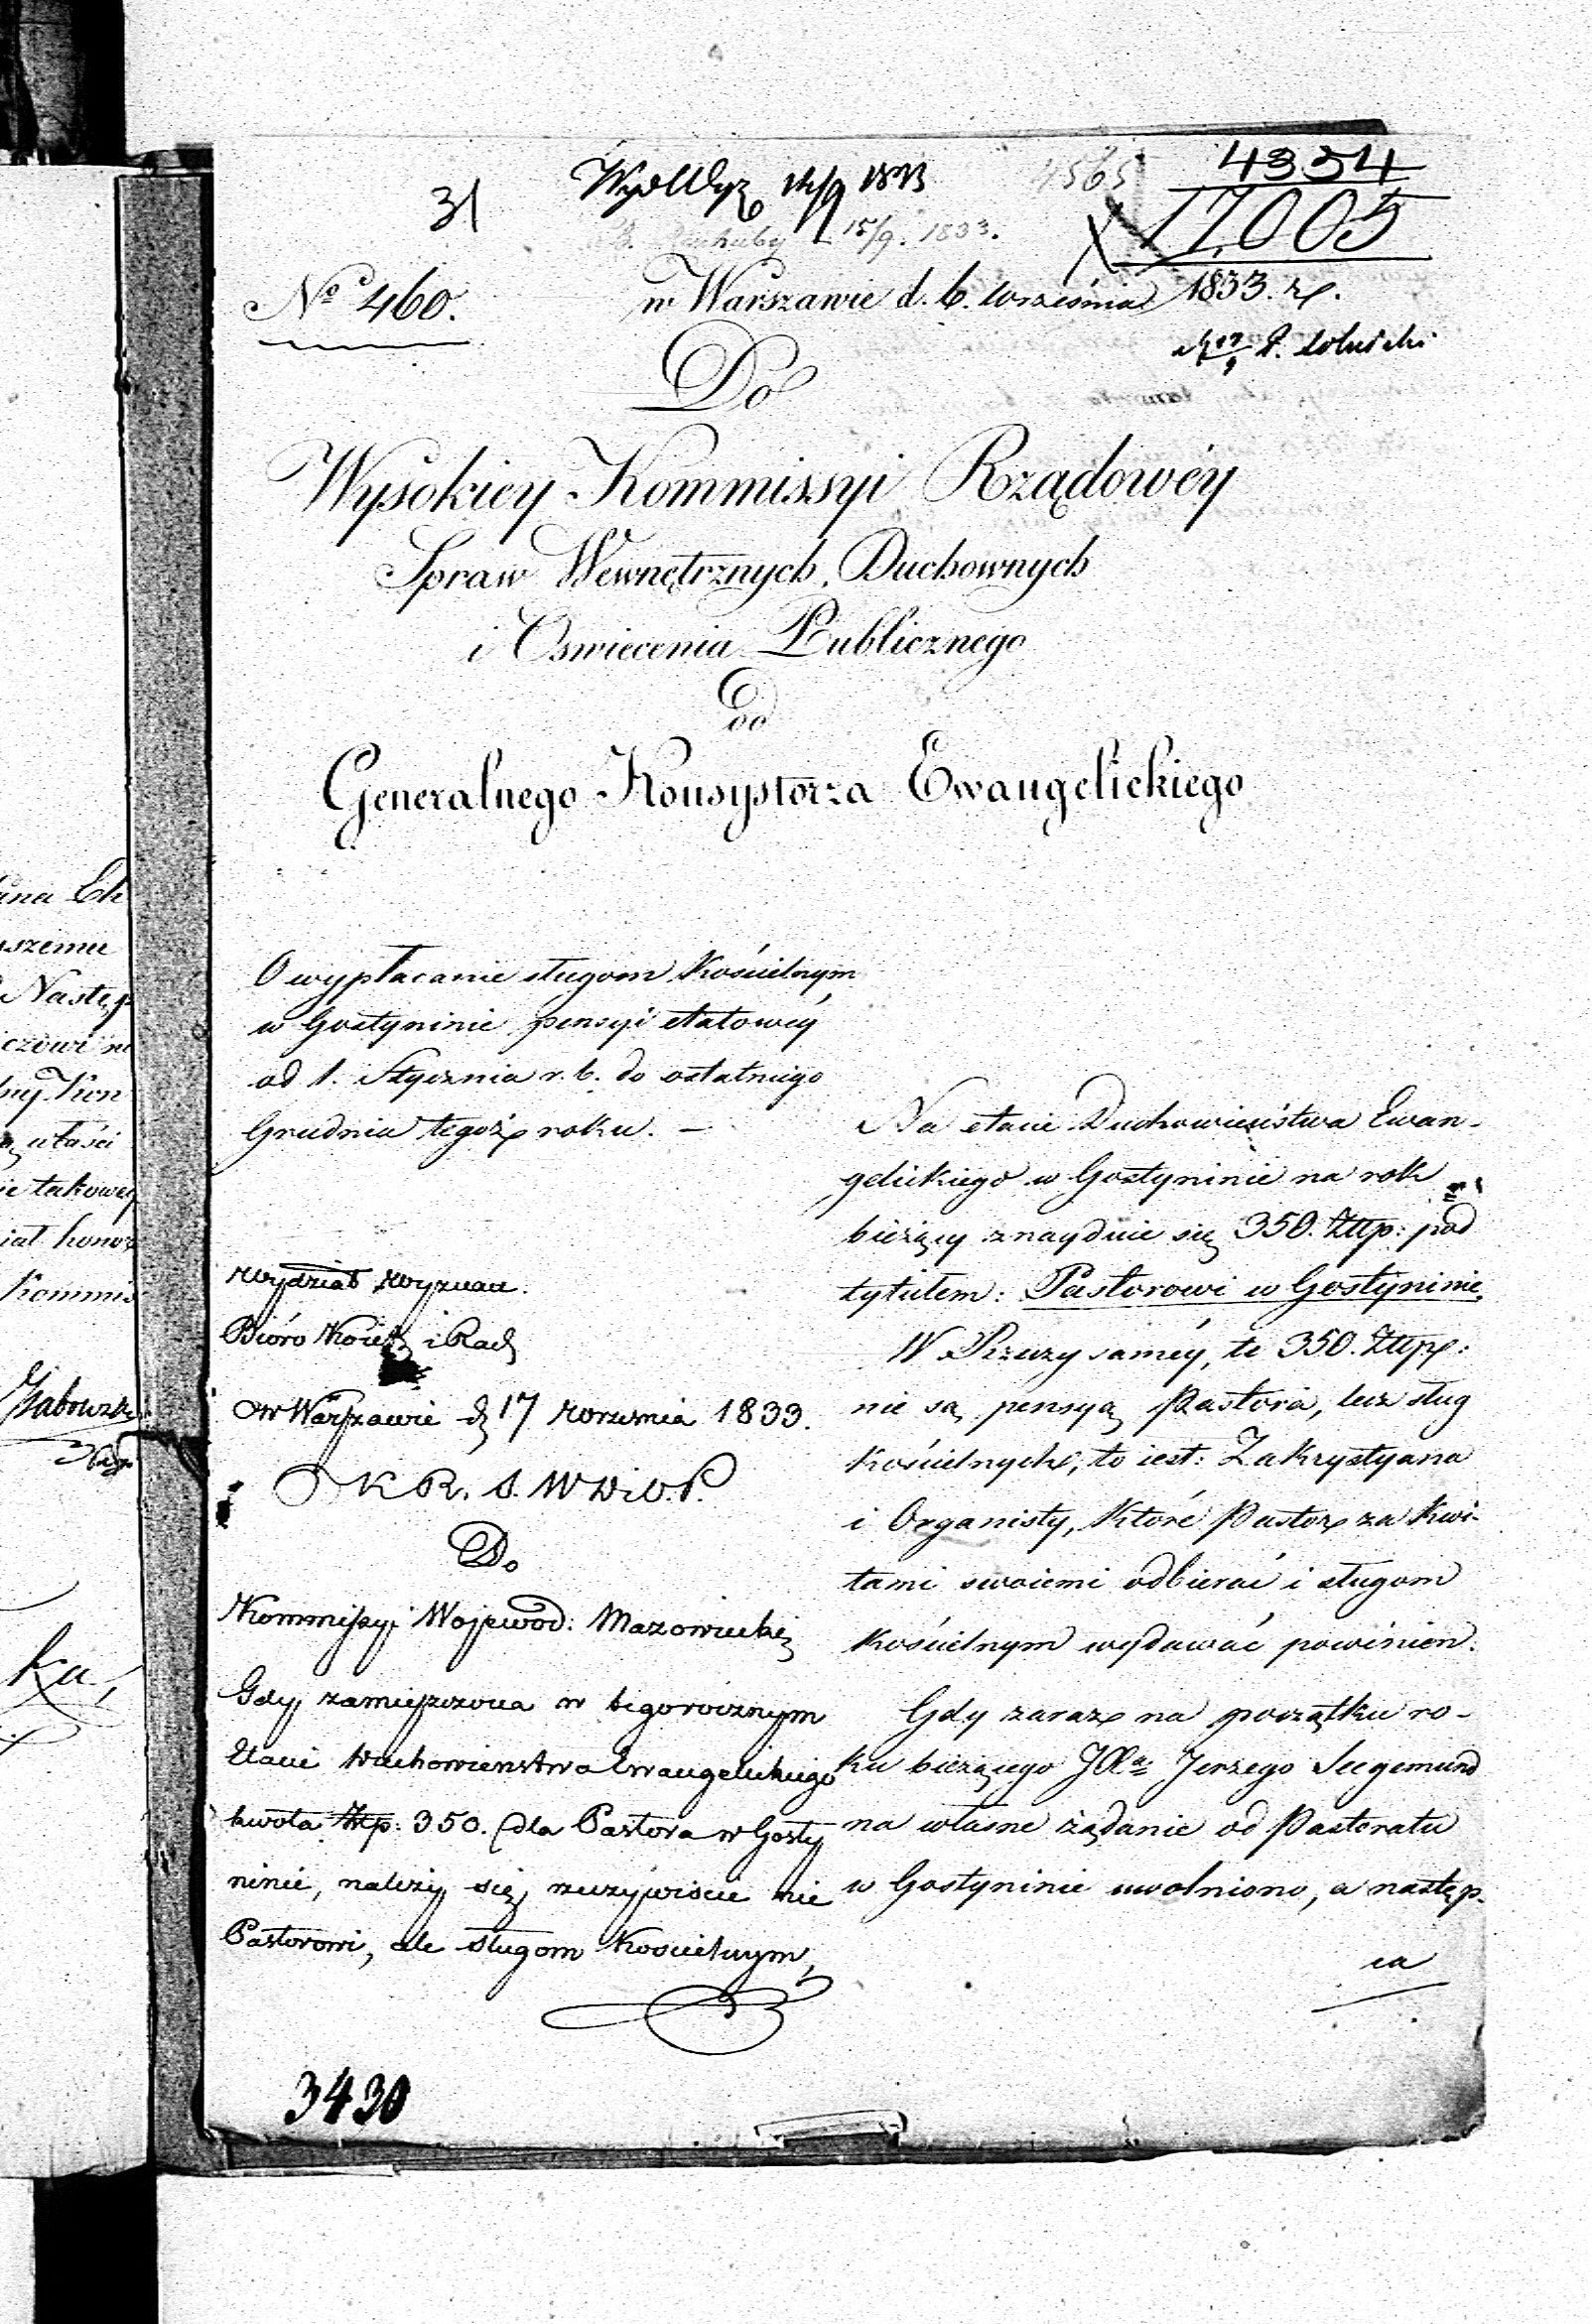 31
WydWyz 14/9 1833
4565
4334
15/9. 1833.
17,005
No 460.
w Warszawie d. 6. Września 1833. r.
Do
Wysokiey Kommissyi Rządowéy
Spraw Wewnętrznych, Duchownych
i Oswiecenia Publicznego
Od
Generalnego Konsystorza Ewangelickiego
O wypłacanie sługom Kościelnym
w Gostyninie pensyi etatowéy
od 1. Stycznia r. b. do ostatniego
Grudnia tegoż roku. –
Wydział Wyznan.
Bióro Kościel i Rach
w Warszawie d 17 Wrzesnia 1833.
K R. S. W D i O. P.
Do
Kommissyi Wojewód: Mazowieckiej
Gdy zamieszczona w tegorocznym
Etacie Duchowienstwa Ewangelickiego
kwota Złtp: 350. dla Pastora w Gosty
ninie, należy się, rzeczywiscie nie
Pastorowi, ale sługom Koscielnym,
Na etacie Duchowieństwa Ewan-
gelickiego w Gostyninie na rok
bieżący znayduie się 350. Złtp: pod
tytułem: Pastorowi w Gostyninie.
W Rzeczy saméy, te 350. Złtp:
nie są pensyą Pastora, lecz sług
kościelnych, to iest: Zakrystyana
i Organisty, które Pastor za kwi-
tami swoiemi odbierać i sługom
kościelnym wydawać powinien.
Gdy zaraz na początku ro-
ku bieżącego JXa Jerzego Seegemund
na własne żądanie od Pastoratu
w Gostyninie uwolniono, a następ-
ca
3430
ana
szemu
Następ
czowi
ny Kon
właści
ie takowey
iał honor
Kommis
ka,